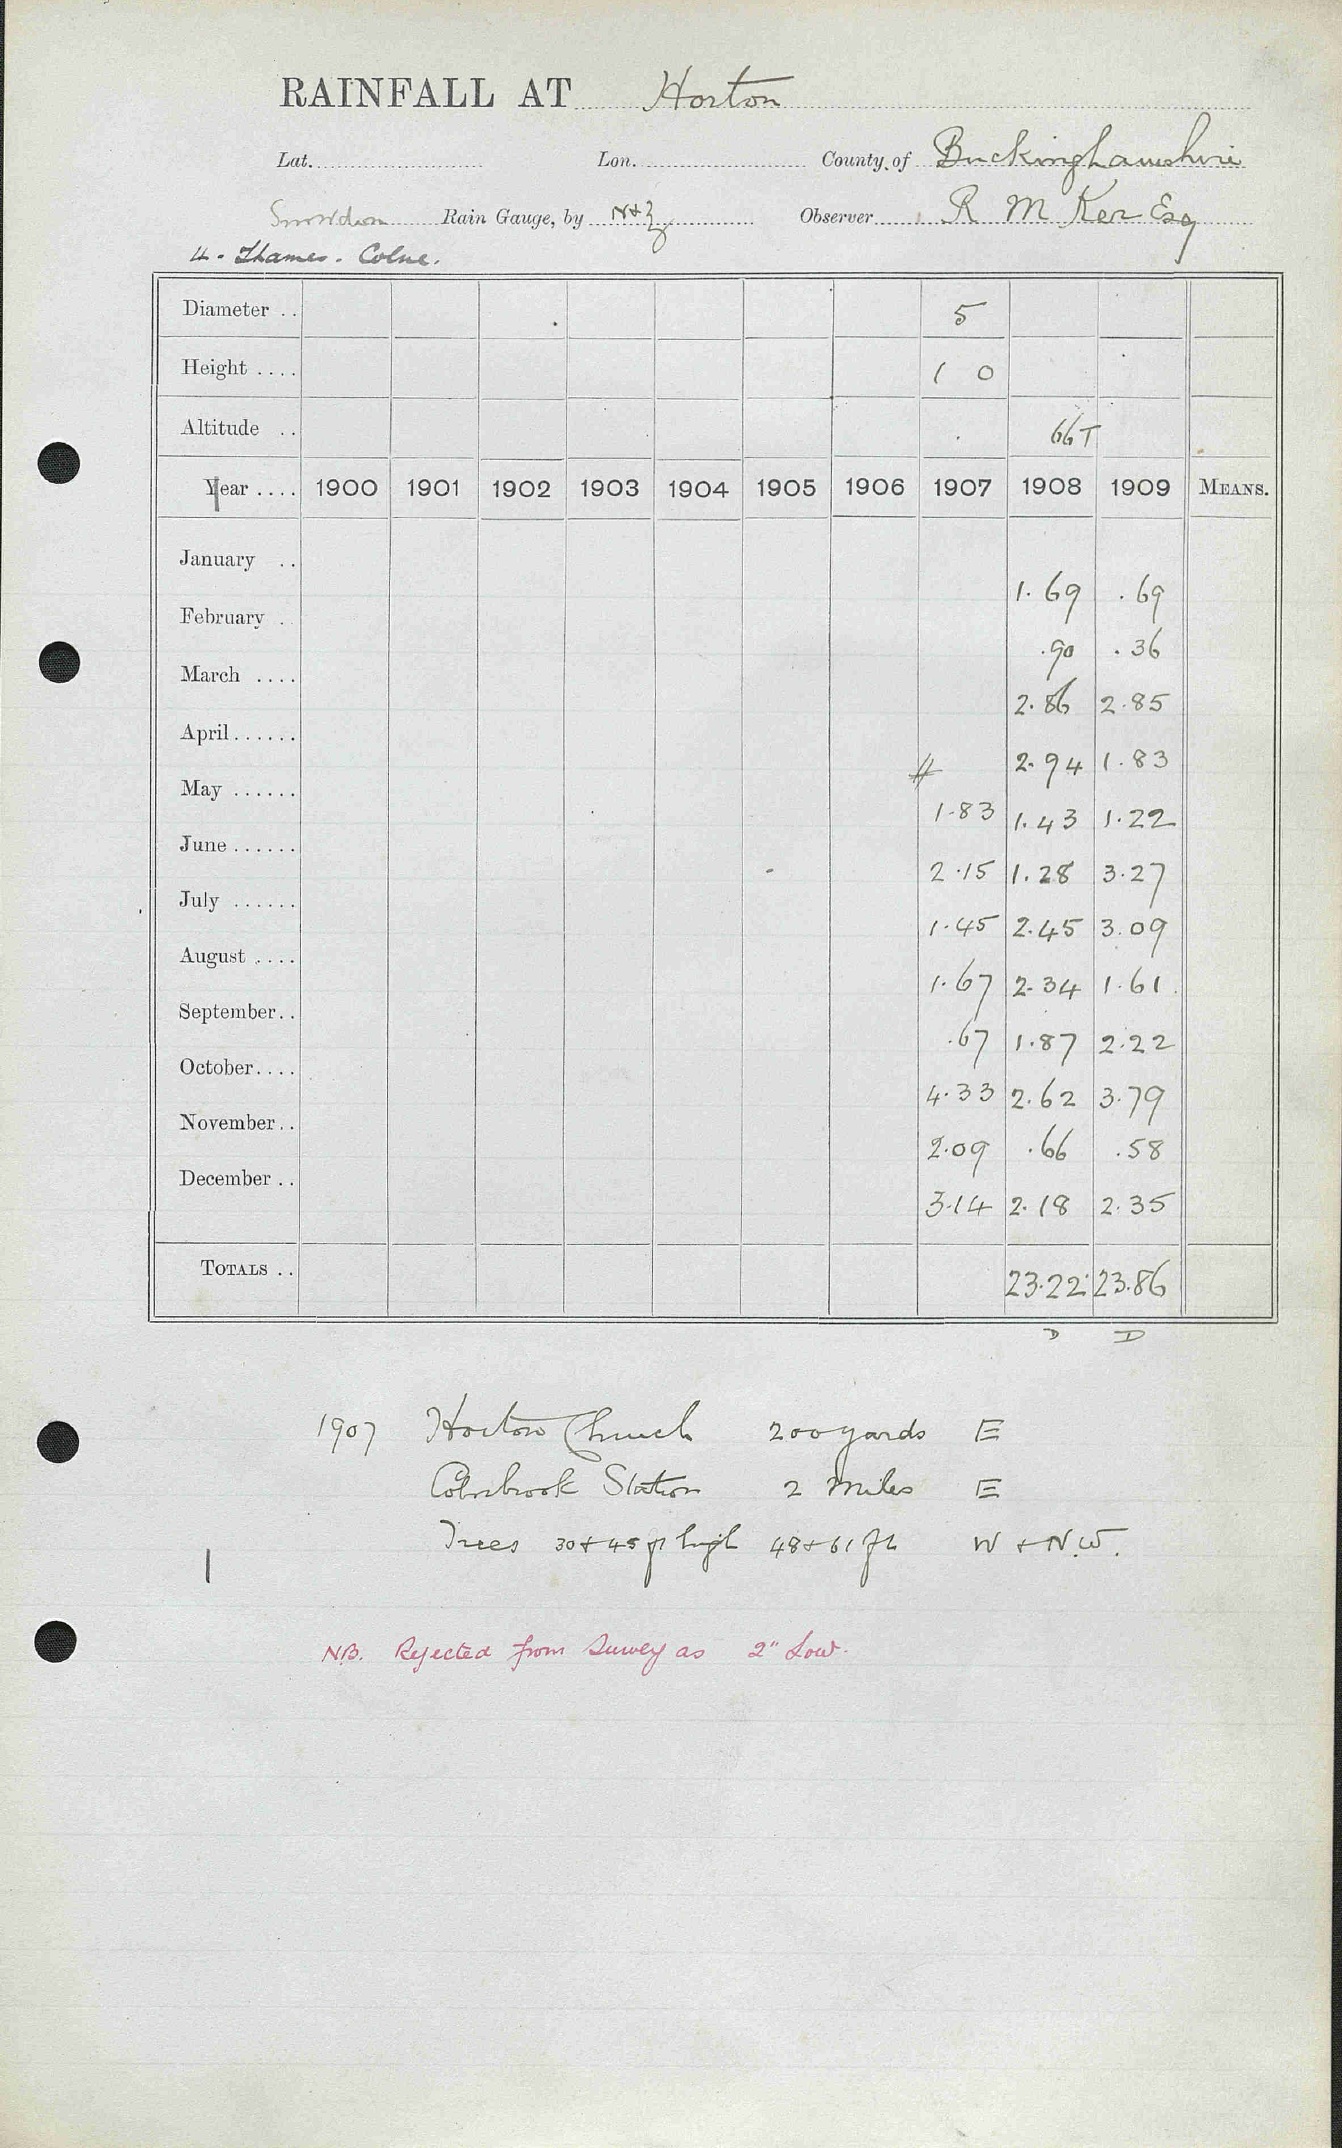 RAINFALL AT Horton
Lat. Lon. County of Buckinghamshire
Snowdon Rain Gauge, by N+Z Observer R M Ker Esq
4. Thames. Colne.
Diameter .. 5
Height .... 1 0
Altitude .. 66T
Year .... 1900 1901 1902 1903 1904 1905 1906 1907 1908 1909 MEANS.
January .. 1.69 .69
February .. .90 .36
March .... 2.86 2.85
April...... 2.94 1.83
May ...... 1.83 1.43 1.22
June ...... 2.15 1.28 3.27
July ...... 1.45 2.45 3.09
August .... 1.67 2.34 1.61
September.. .67 1.87 2.22
October.... 4.33 2.62 3.79
November.. 2.09 .66 .58
December .. 3.14 2.18 2.35
TOTALS .. 23.22 23.86
D D
1907 Horton Church 200 yards E
Colnbrook Station 2 Miles E
Trees 30 + 45 ft high 48 + 61 ft W + N.W.
NB. Rejected from Survey as 2" Low.